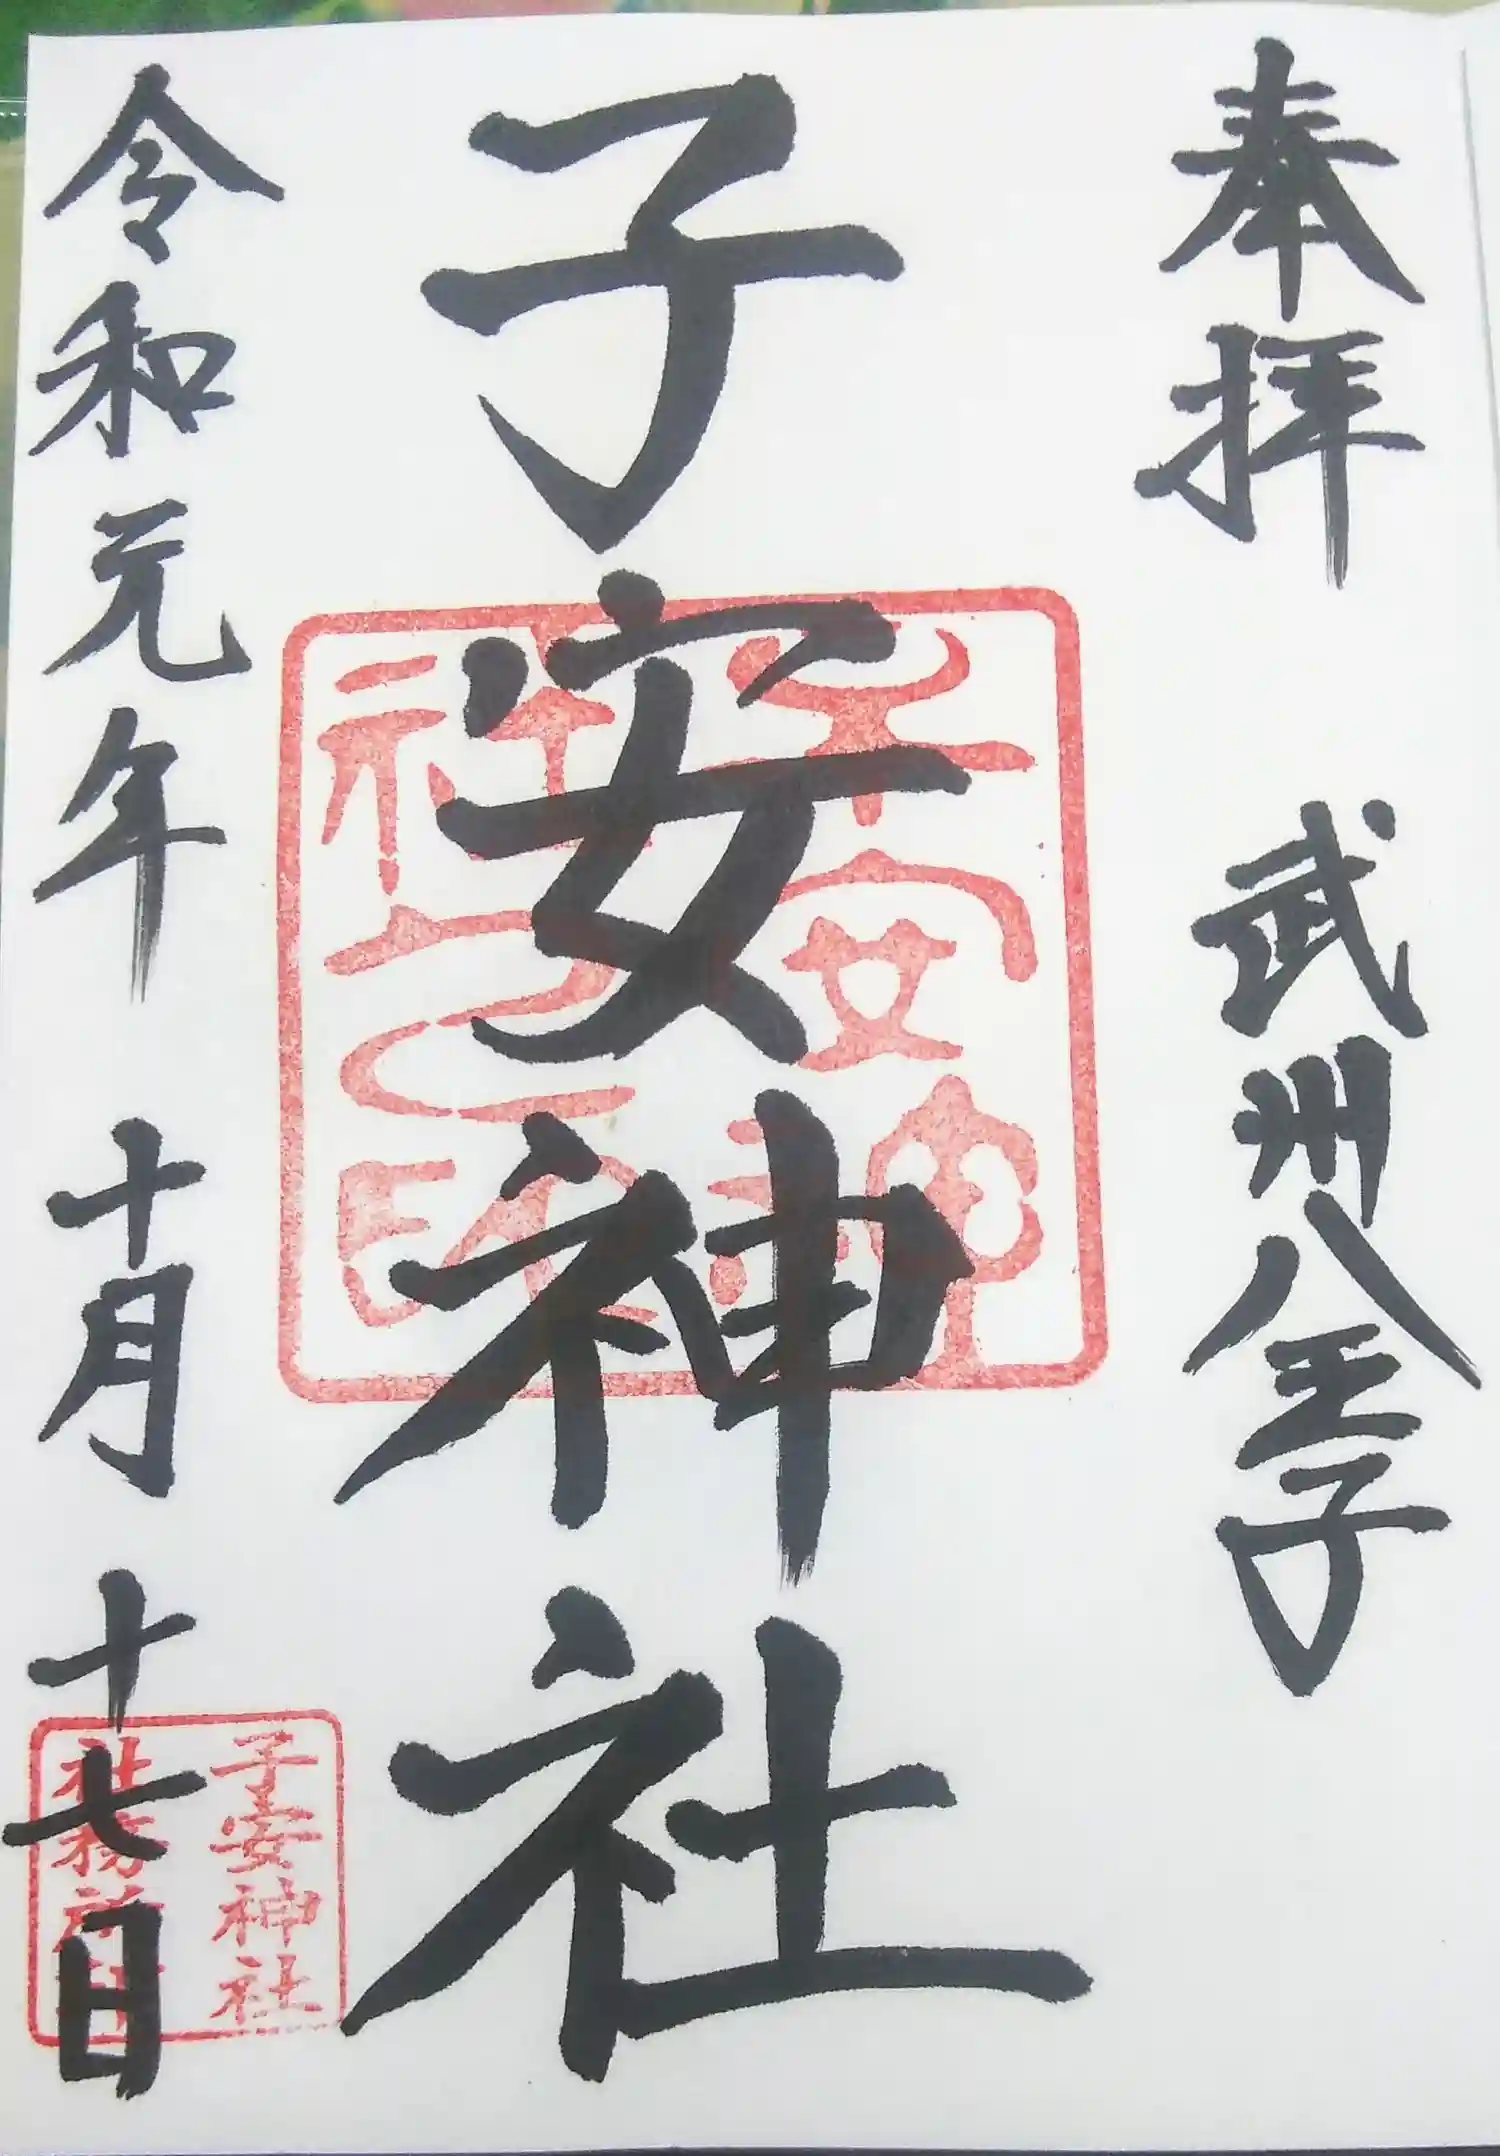 奉拝 武州八王子
子安神社
子安神
社之印
令和元年 十月 十七日
子安神社
社務所印